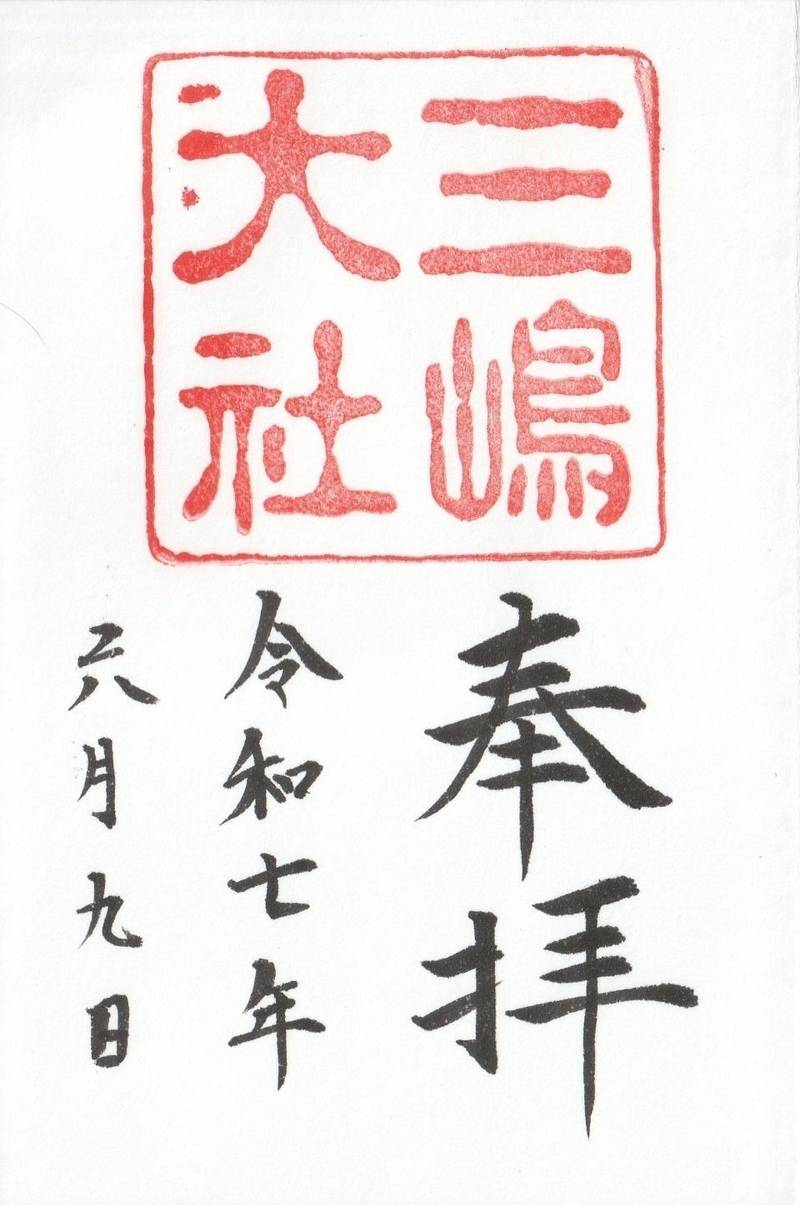 三嶋
大社
奉拝
令和七年
六月九日